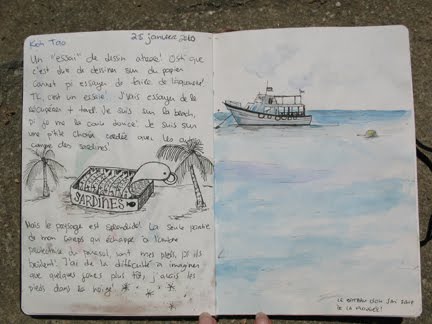 Koh Tao
25 janvier 2010
Un "essai" de dessin
c'est dur de dessiner sur du papier
carnet pi essayer de faire de l'aquarelle!
TK, c'est un essai! J'vais essayer de le
récupérer + tard! Je suis sur la beach,
pi je me la coule douce! Je suis sur
une p'tite chaise cordée avec les autres
comme des sardines!
SARDINES
Mais le paysage est splendide! La seule partie
de mon corps qui échappe à l'ombre
du parasol, sont mes pieds, pi ils
brûlent! J'ai de la difficulté à imaginer
que quelques jours plus tôt, j'avais les
pieds dans la neige!
LE BATEAU D'OÙ J'AI